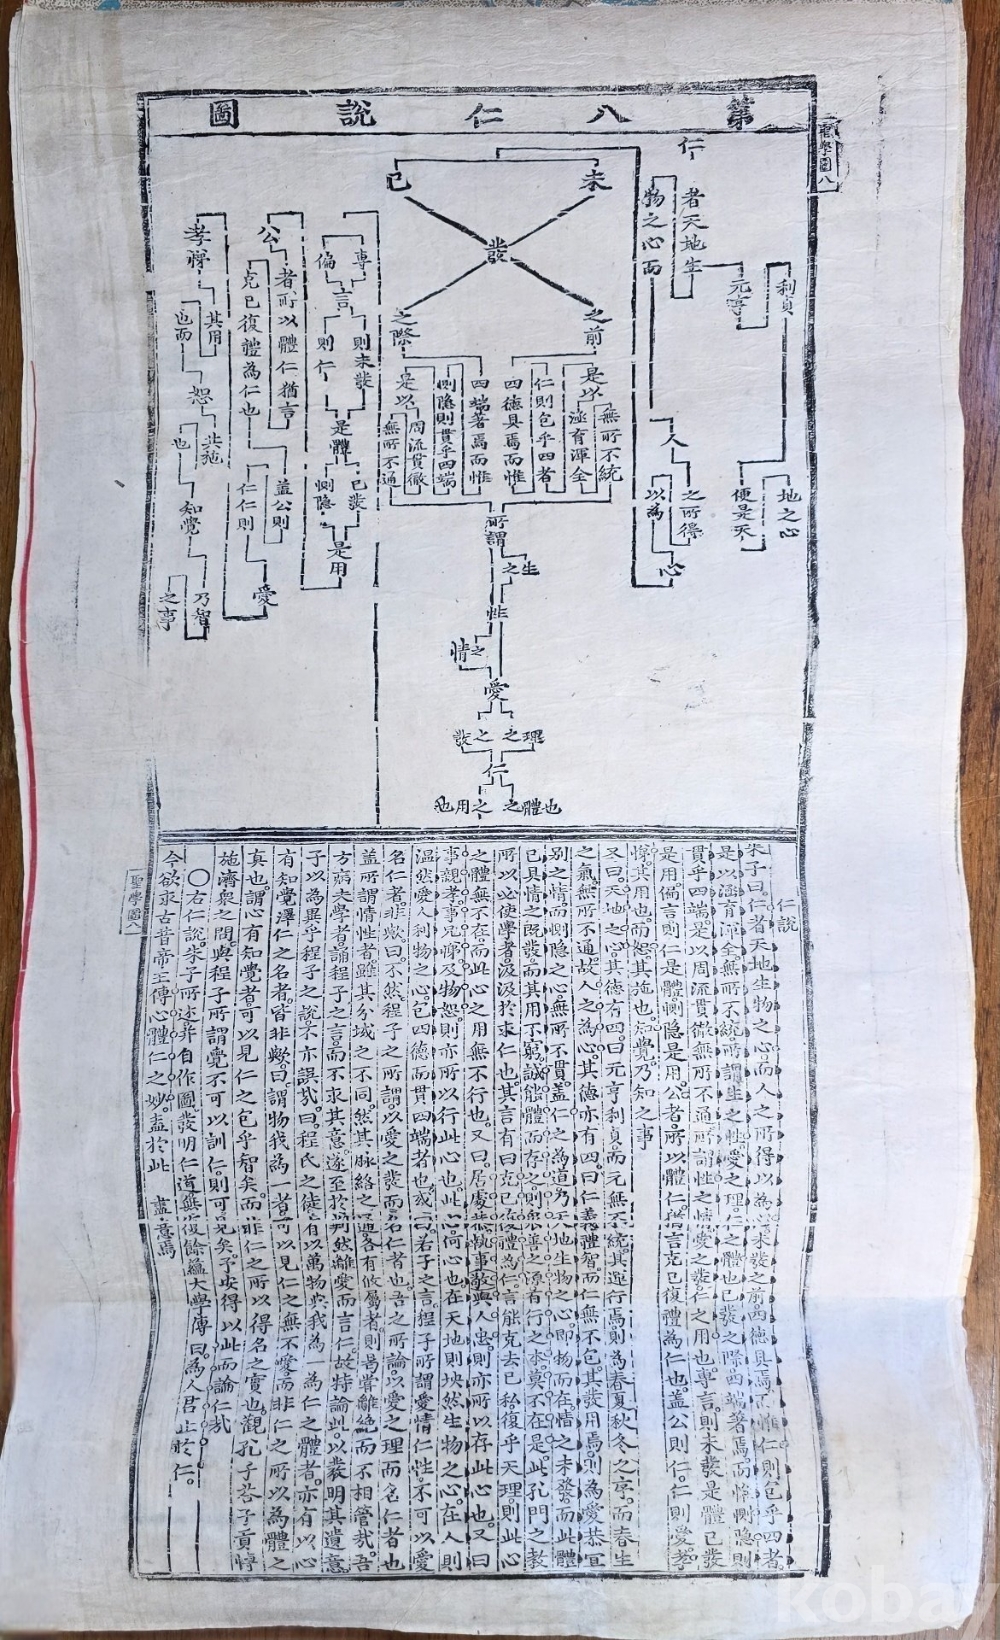 第八仁說圖
聖學圖八
仁
者天地生
物之心而
元亨
利貞
地之心
便是天
人
之所得
以為
心
未
已
發
之前
之際
是以
無所不統
涵育渾全
仁則包乎四者
四德具焉而惟
四端著焉而惟
惻隱則貫乎四端
是以
周流貫徹
無所不通
所謂
生之
性
之情
愛
之理
之發
仁
之體也
之用也
專
偏
言
則未發
則仁
是體
已發
惻隱
是用
公
者所以體仁猶言
克己復禮為仁也
蓋公則
仁仁則
愛
孝悌
其用
也而
恕
其施
也
知覺
乃智
之事
仁說
朱子曰仁者天地生物之心而人之所得以為心未發之前四德具焉而惟仁則包乎四者
是以涵育渾全無所不統所謂生之性愛之理仁之體也已發之際四端著焉而惟惻隱則
貫乎四端是以周流貫徹無所不通所謂性之情愛之發仁之用也專言則未發是體已發
是用偏言則仁是體惻隱是用公者所以體仁猶言克己復禮為仁也蓋公則仁仁則愛孝
悌其用也而恕其施也知覺乃知之事
又曰天地之心其德有四曰元亨利貞而元無不統其運行焉則為春夏秋冬之序而春生
之氣無所不通故人之為心其德亦有四曰仁義禮智而仁無不包其發用焉則為愛恭宜
別之情而惻隱之心無所不貫蓋仁之為道乃天地生物之心即物而在情之未發而此體
已具情之既發而其用不窮誠能體而存之則衆善之源百行之本莫不在是此孔門之教
所以必使學者汲汲於求仁也其言有曰克己復禮為仁言能克去己私復乎天理則此心
之體無不存而此心之用無不行也又曰居處恭執事敬與人忠則亦所以存此心也又曰
事親孝事兄悌及物恕則亦所以行此心也此心何心也在天地則坱然生物之心在人則
溫然愛人利物之心包四德而貫四端者也或曰若子之言程子所謂愛情仁性不可以愛
名仁者非歟曰不然程子之所謂以愛之發而名仁者也吾之所論以愛之理而名仁者也
蓋所謂情性者雖其分域之不同然其脉絡之通各有攸屬者則曷嘗離絶而不相管哉吾
方病夫學者誦程子之言而不求其意遂至於判然離愛而言仁故特論此以發明其遺意
子以為異乎程子之說不亦誤哉曰程氏之徒有以萬物與我為一為仁之體者亦有以心
有知覺釋仁之名者皆非歟曰謂物我為一者可以見仁之無不愛而非仁之所以為體之
真也謂心有知覺者可以見仁之包乎智矣而非仁之所以得名之實也觀孔子答子貢博
施濟衆之問與程子所謂覺不可以訓仁則可見矣子安得以此而論仁哉
○右仁說朱子所述幷自作圖發明仁道無復餘蘊大學傳曰為人君止於仁
今欲求古昔帝王傳心體仁之妙盍於此盡意焉
聖學圖八
kobay